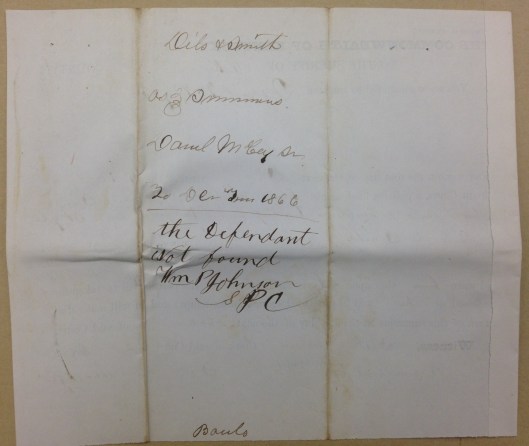 Dils & Smith
vs } Summons
Daniel McCoy Sr
To Dec Term 1866
the Defendant
Not found
Wm P Johnson
S P C